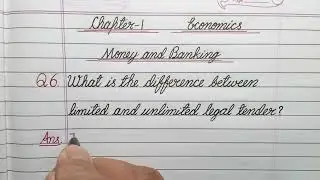 Chapter-1 Economics
Money and Banking
Q6. What is the difference between
limited and unlimited legal tender?
Ans.